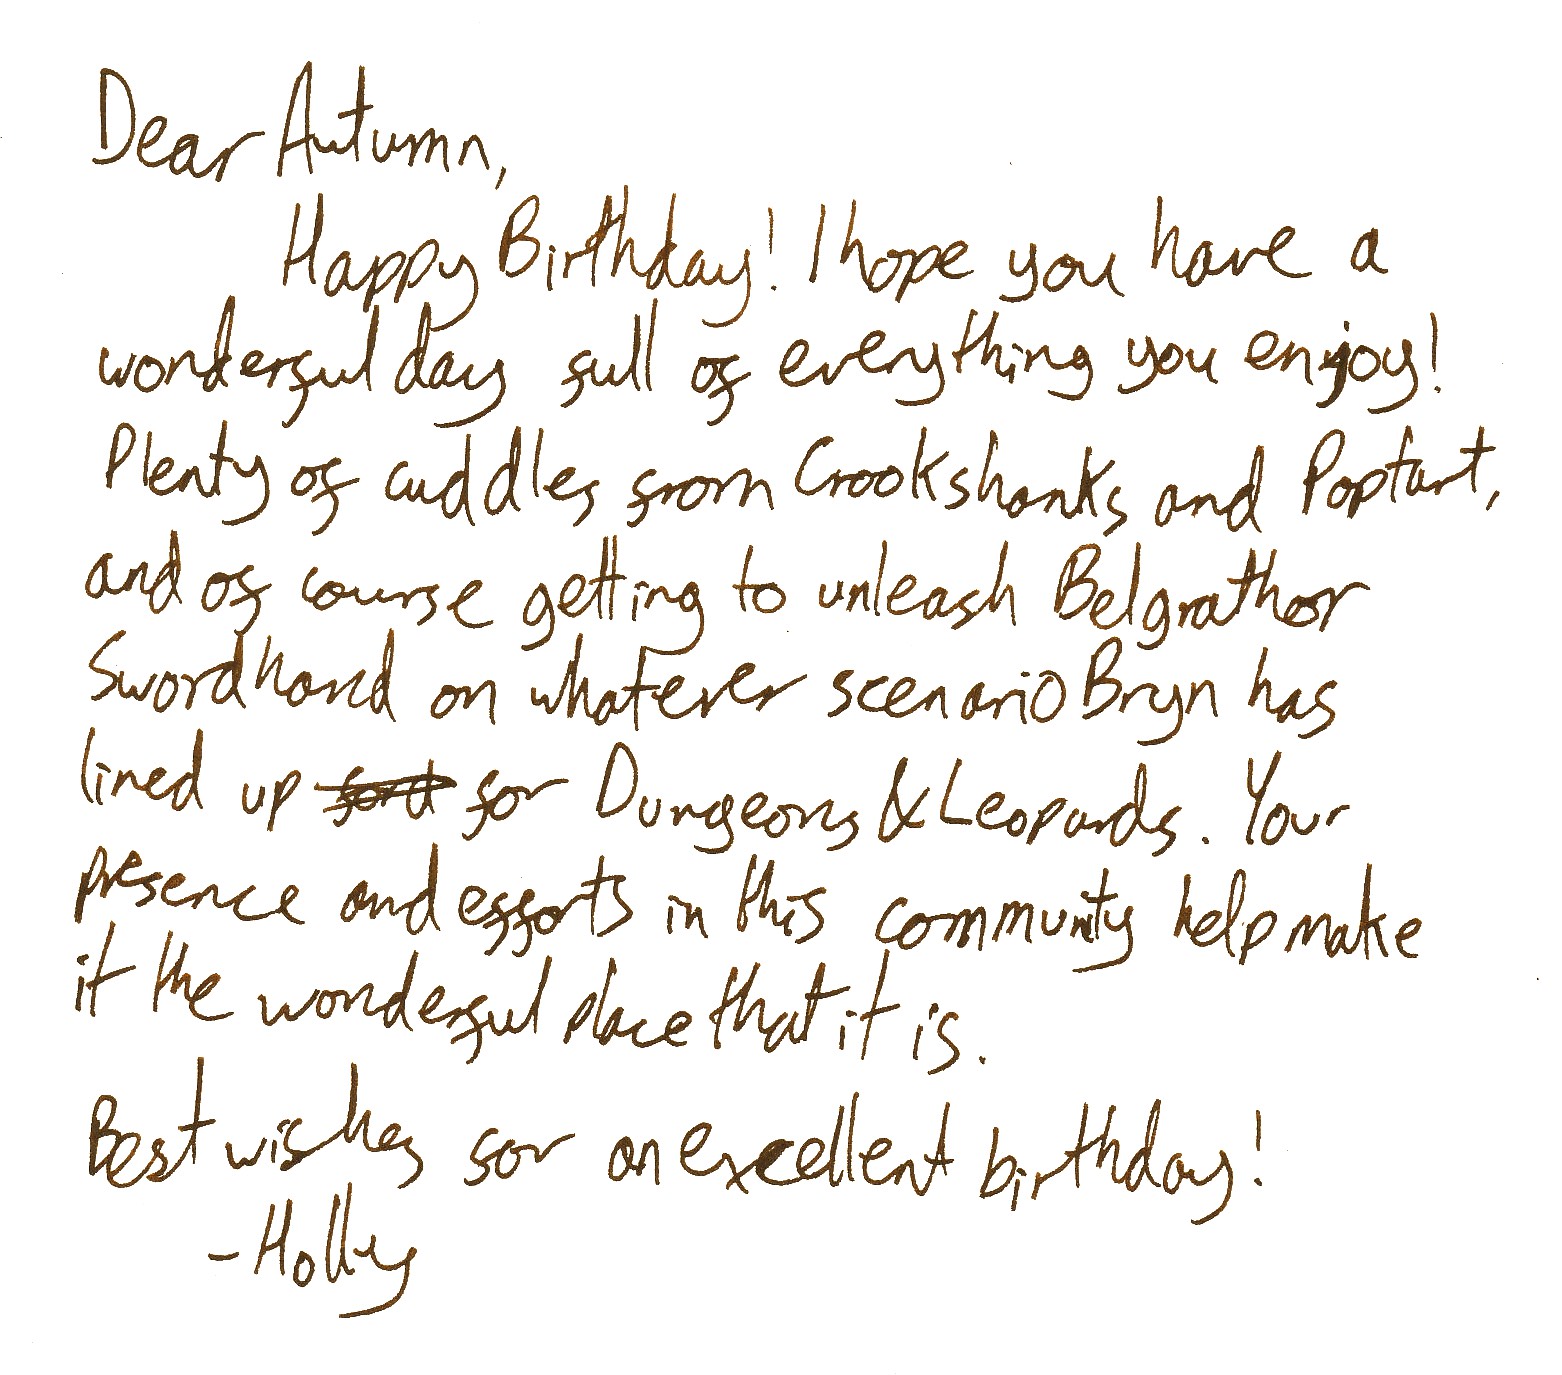 Dear Autumn,
Happy Birthday! I hope you have a
wonderful day full of everything you enjoy!
Plenty of cuddles from Crookshanks and Poptart,
and of course getting to unleash Belgrathor
Swordhand on whatever scenario Bryn has
lined up for Dungeons & Leopards. Your
presence and efforts in this community help make
it the wonderful place that it is.
Best wishes for an excellent birthday!
- Holly